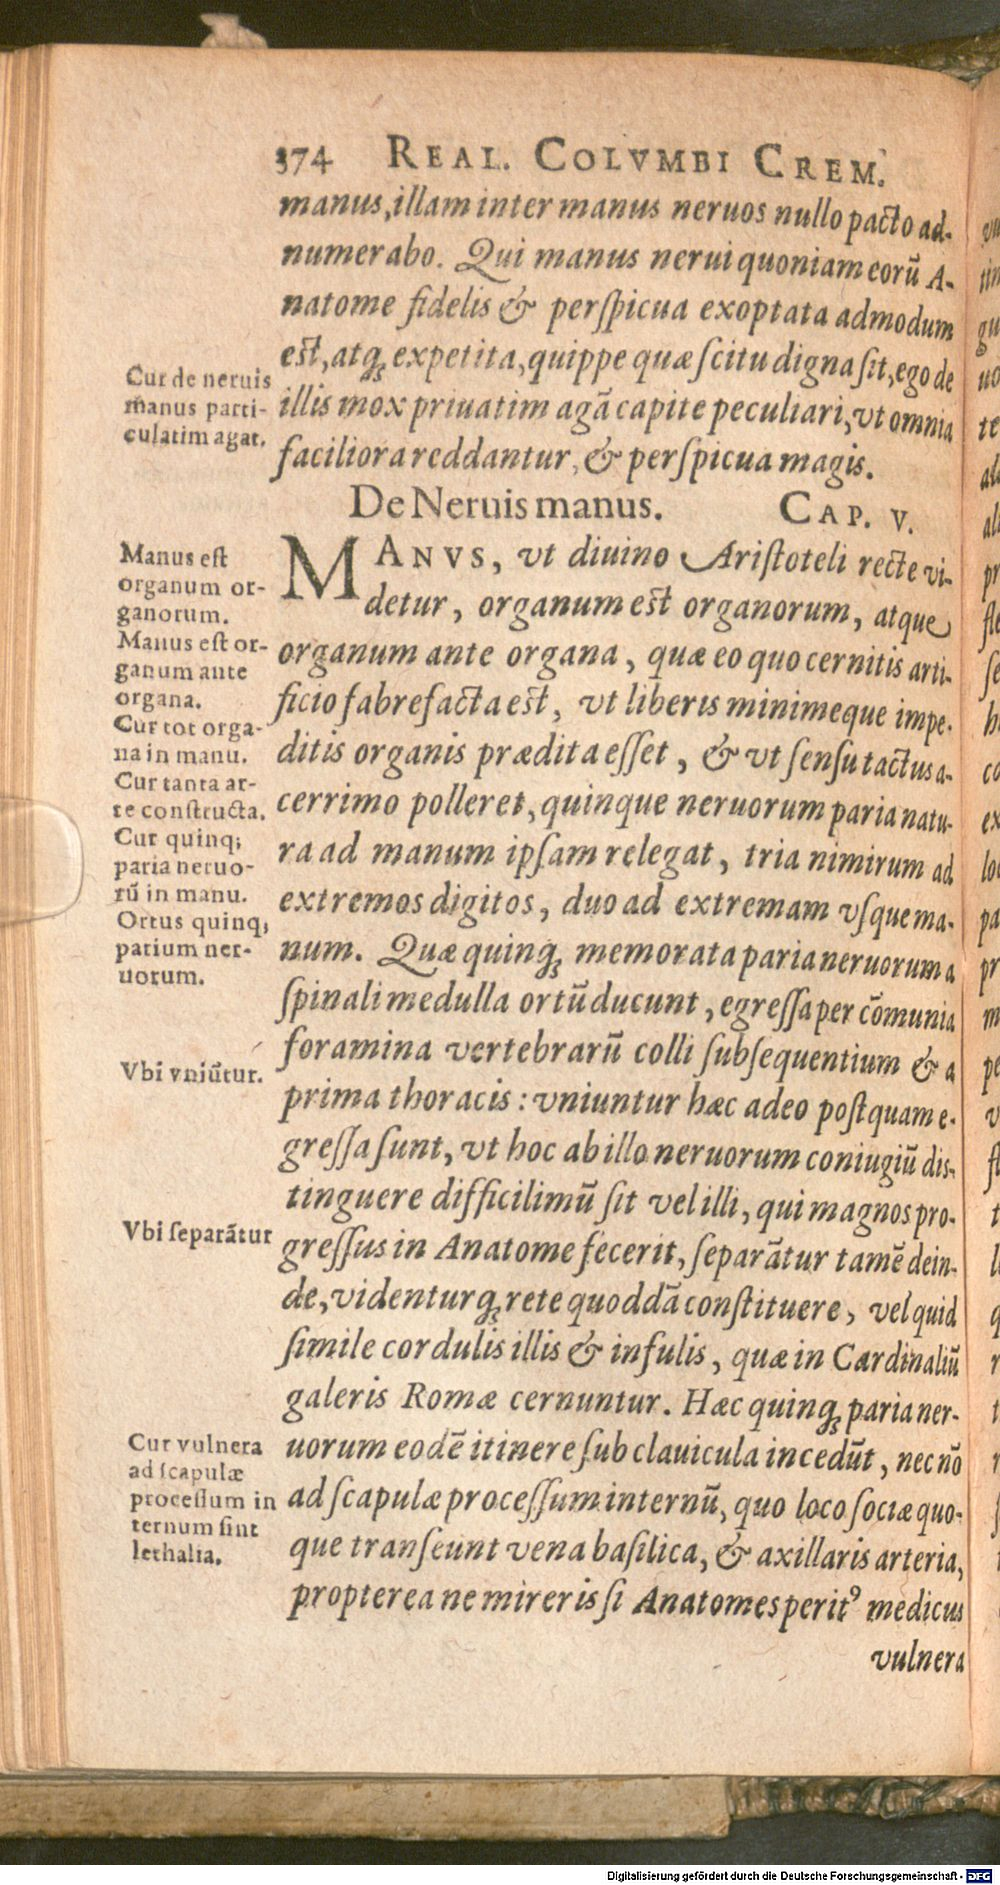 374 REAL. COLVMBI CREM.
manus, illam inter manus neruos nullo pacto ad-
numerabo. Qui manus nerui quoniam eorũ A-
natome fidelis & perſpicua exoptata admodum
est, atq; expetita, quippe quæ ſcitu digna ſit, ego de
illis mox priuatim agã capite peculiari, vt omnia
faciliora reddantur, & perſpicua magis.
Cur de neruis
manus parti-
culatim agat.
De Neruis manus. CAP. V.
MANVS, vt diuino Ariſtoteli recte vi-
detur, organum est organorum, atque
organum ante organa, quæ eo quo cernitis arti-
ficio fabrefacta est, vt liberis minimeque impe-
ditis organis prædita eſſet, & vt ſenſu tactus a-
cerrimo polleret, quinque neruorum paria natu-
ra ad manum ipſam relegat, tria nimirum ad
extremos digitos, duo ad extremam vſque ma-
num. Quæ quinq; memorata paria neruorum a
ſpinali medulla ortũ ducunt, egreſſa per cõmunia
foramina vertebrarũ colli ſubſequentium & a
prima thoracis: vniuntur hæc adeo poſtquam e-
greſſa ſunt, vt hoc ab illo neruorum coniugiũ dis-
tinguere difficilimũ ſit vel illi, qui magnos pro-
greſſus in Anatome fecerit, ſeparãtur tamẽ dein-
de, videnturq; rete quoddã conſtituere, vel quid
ſimile cordulis illis & infulis, quæ in Cardinaliũ
galeris Romæ cernuntur. Hæc quinq; paria ner-
uorum eodẽ itinere ſub clauicula incedũt, nec nõ
ad ſcapulæ proceſſum internũ, quo loco ſociæ quo-
que tranſeunt vena baſilica, & axillaris arteria,
propterea ne mireris ſi Anatomes peritꝰ medicus
vulnera
Manus eſt
organum or-
ganorum.
Manus eſt or-
ganum ante
organa.
Cur tot orga-
na in manu.
Cur tanta ar-
te conſtructa.
Cur quinq;
paria neruo-
rũ in manu.
Ortus quinq;
parium ner-
uorum.
Vbi vniũtur.
Vbi ſeparãtur
Cur vulnera
ad ſcapulæ
proceſſum in
ternum ſint
lethalia.
Digitalisierung gefördert durch die Deutsche Forschungsgemeinschaft - DFG